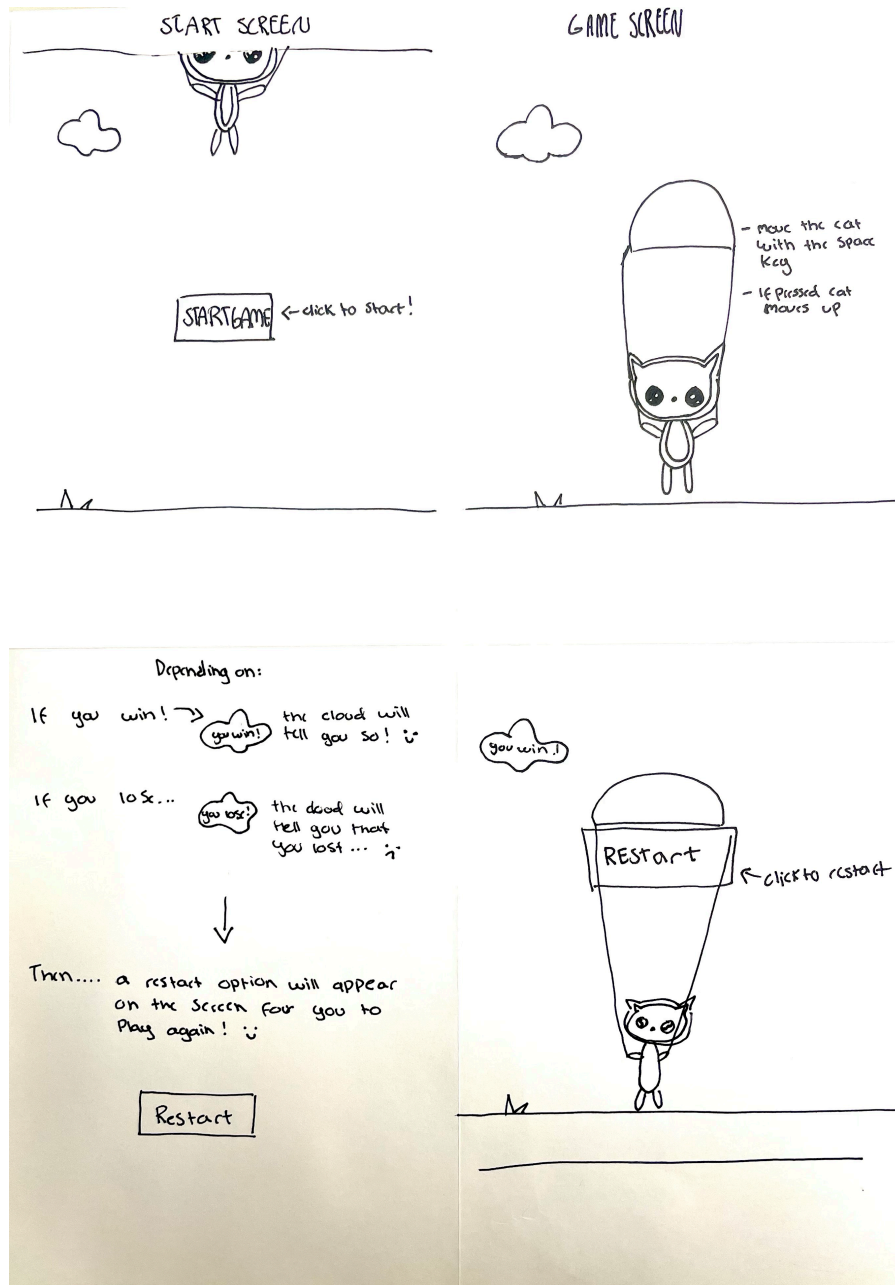 START SCREEN
STARTGAME
<-click to start!
GAME SCREEN
- move the cat
with the space
key
- If pressed cat
moves up
Depending on:
If you win!
you win!
the cloud will
tell you so!
If you lose...
you lose!
the cloud will
tell you that
you lost...
Then.... a restart option will appear
on the screen four you to
Play again!
Restart
you win!
REStart
click to restart